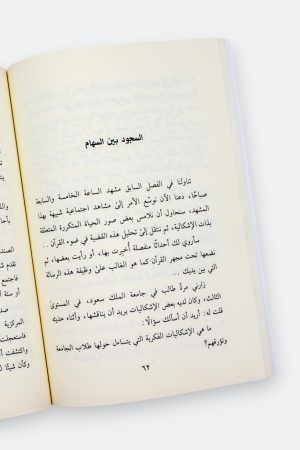 السجود بين السهام
تناولنا في الفصل السابق مشهد الساعة الخامسة والسابعة
صباحًا، دعنا الآن نوسّع الأمر إلى مشاهد اجتماعية شبيهة بهذا
المشهد، سنحاول أن نلامس بعض صور الحياة المتكررة المتعلقة
بذات الإشكالية، ثم ننتقل إلى تحليل هذه القضية في ضوء القرآن ..
سأروي لك أحداثًا منفصلة أُخبرت بها، أو رأيت بعضها، ثم
نضعها تحت مجهر القرآن كما هو الغالب على وظيفة هذه الرسالة
التي بين يديك ..
زارني مرةً طالب في جامعة الملك سعود، في المستوى
الثالث، وكان لديه بعض الإشكاليات يريد أن يناقشها، وأثناء حديثه
قلت له: أريد أن أسألك سؤالًا:
ما هي الإشكاليات الفكرية التي يتساءل حولها طلاب الجامعة
وتؤرقهم؟
٦٢